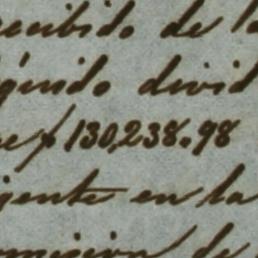 recibido de la
líquido divid
ue $130,238.98
igente en la
omision de